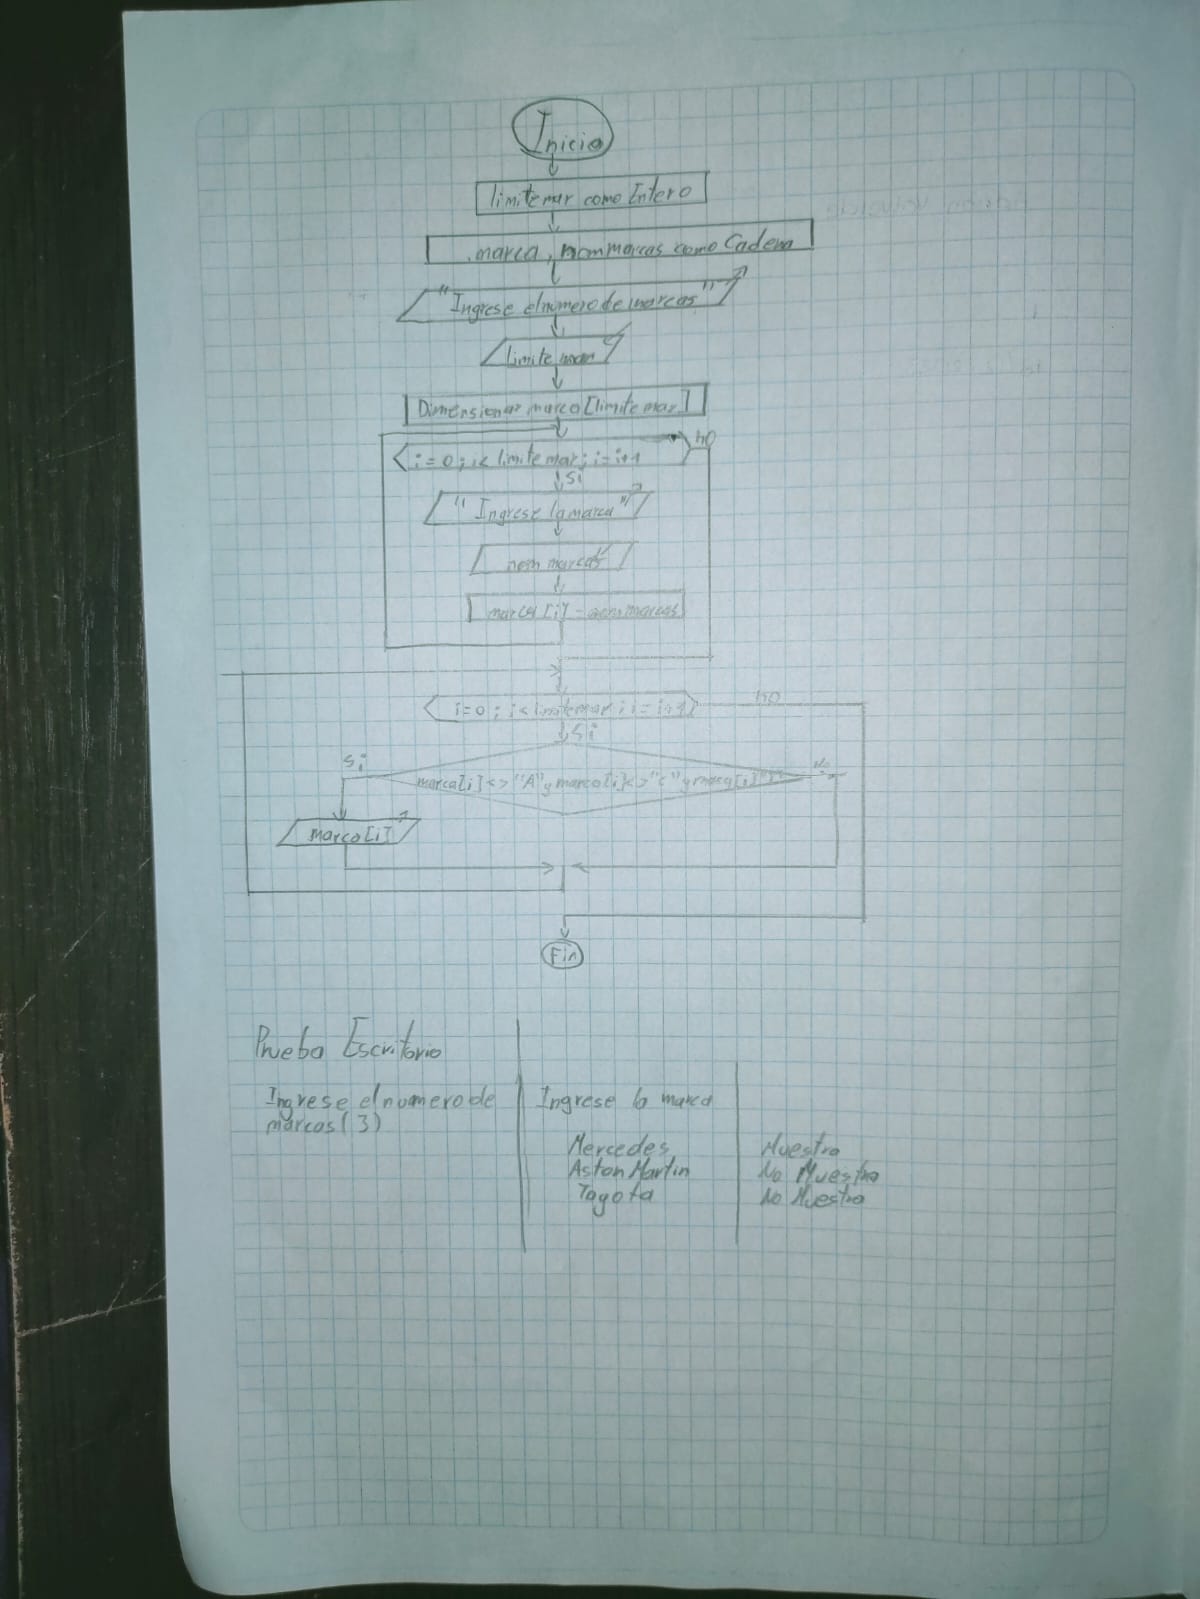 Inicio
limitemar como Entero
marca, nommarcas como Cadena
"Ingrese el numero de marcas"
limitemar
Dimensionar marca[limitemar]
i=0; i< limitemar; i=i+1
no
si
"Ingrese la marca"
nom marcas
marca [i] = nommarcas
i=0; i<limitemar; i=i+1
no
si
si
marca[i]<>"A" y marca[i]<>"c" y marca[i]
No
marca[i]
Fin
Prueba Escritorio
Ingrese el numero de
marcas(3)
Ingrese la marca
Mercedes
Muestra
Aston Martin
No Muestra
Toyota
No Muestra